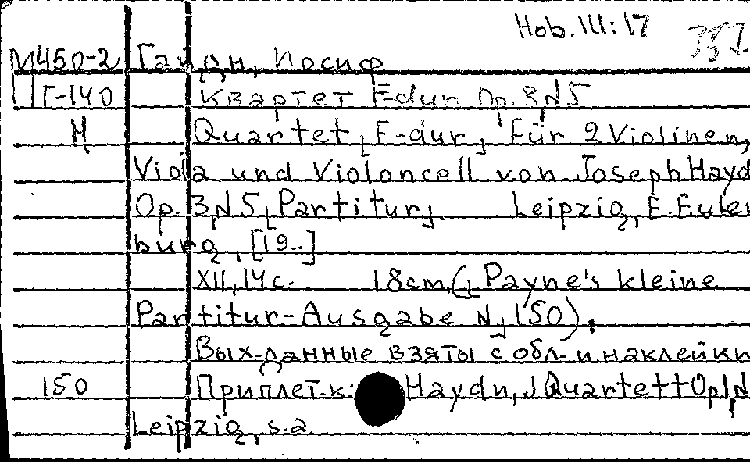 Hob. III:17
M450-2 Гайдн, Иосиф
Г-140 Квартет F-dur Op. 3 N5
Н Quartet, F-dur, für 2 Violinen,
Viola und Violoncell von Joseph Hayd
Op. 3, N5, [Partitur] Leipzig, E. Eulen
burg, [19..]
XII, 14 c. 18cm, (Payne's kleine
Partitur-Ausgabe N 150).
Вых. данные взяты с обл. и наклейки
150 Приплет. к: Haydn, J Quartett Op. 1, N
Leipzig, s.a.